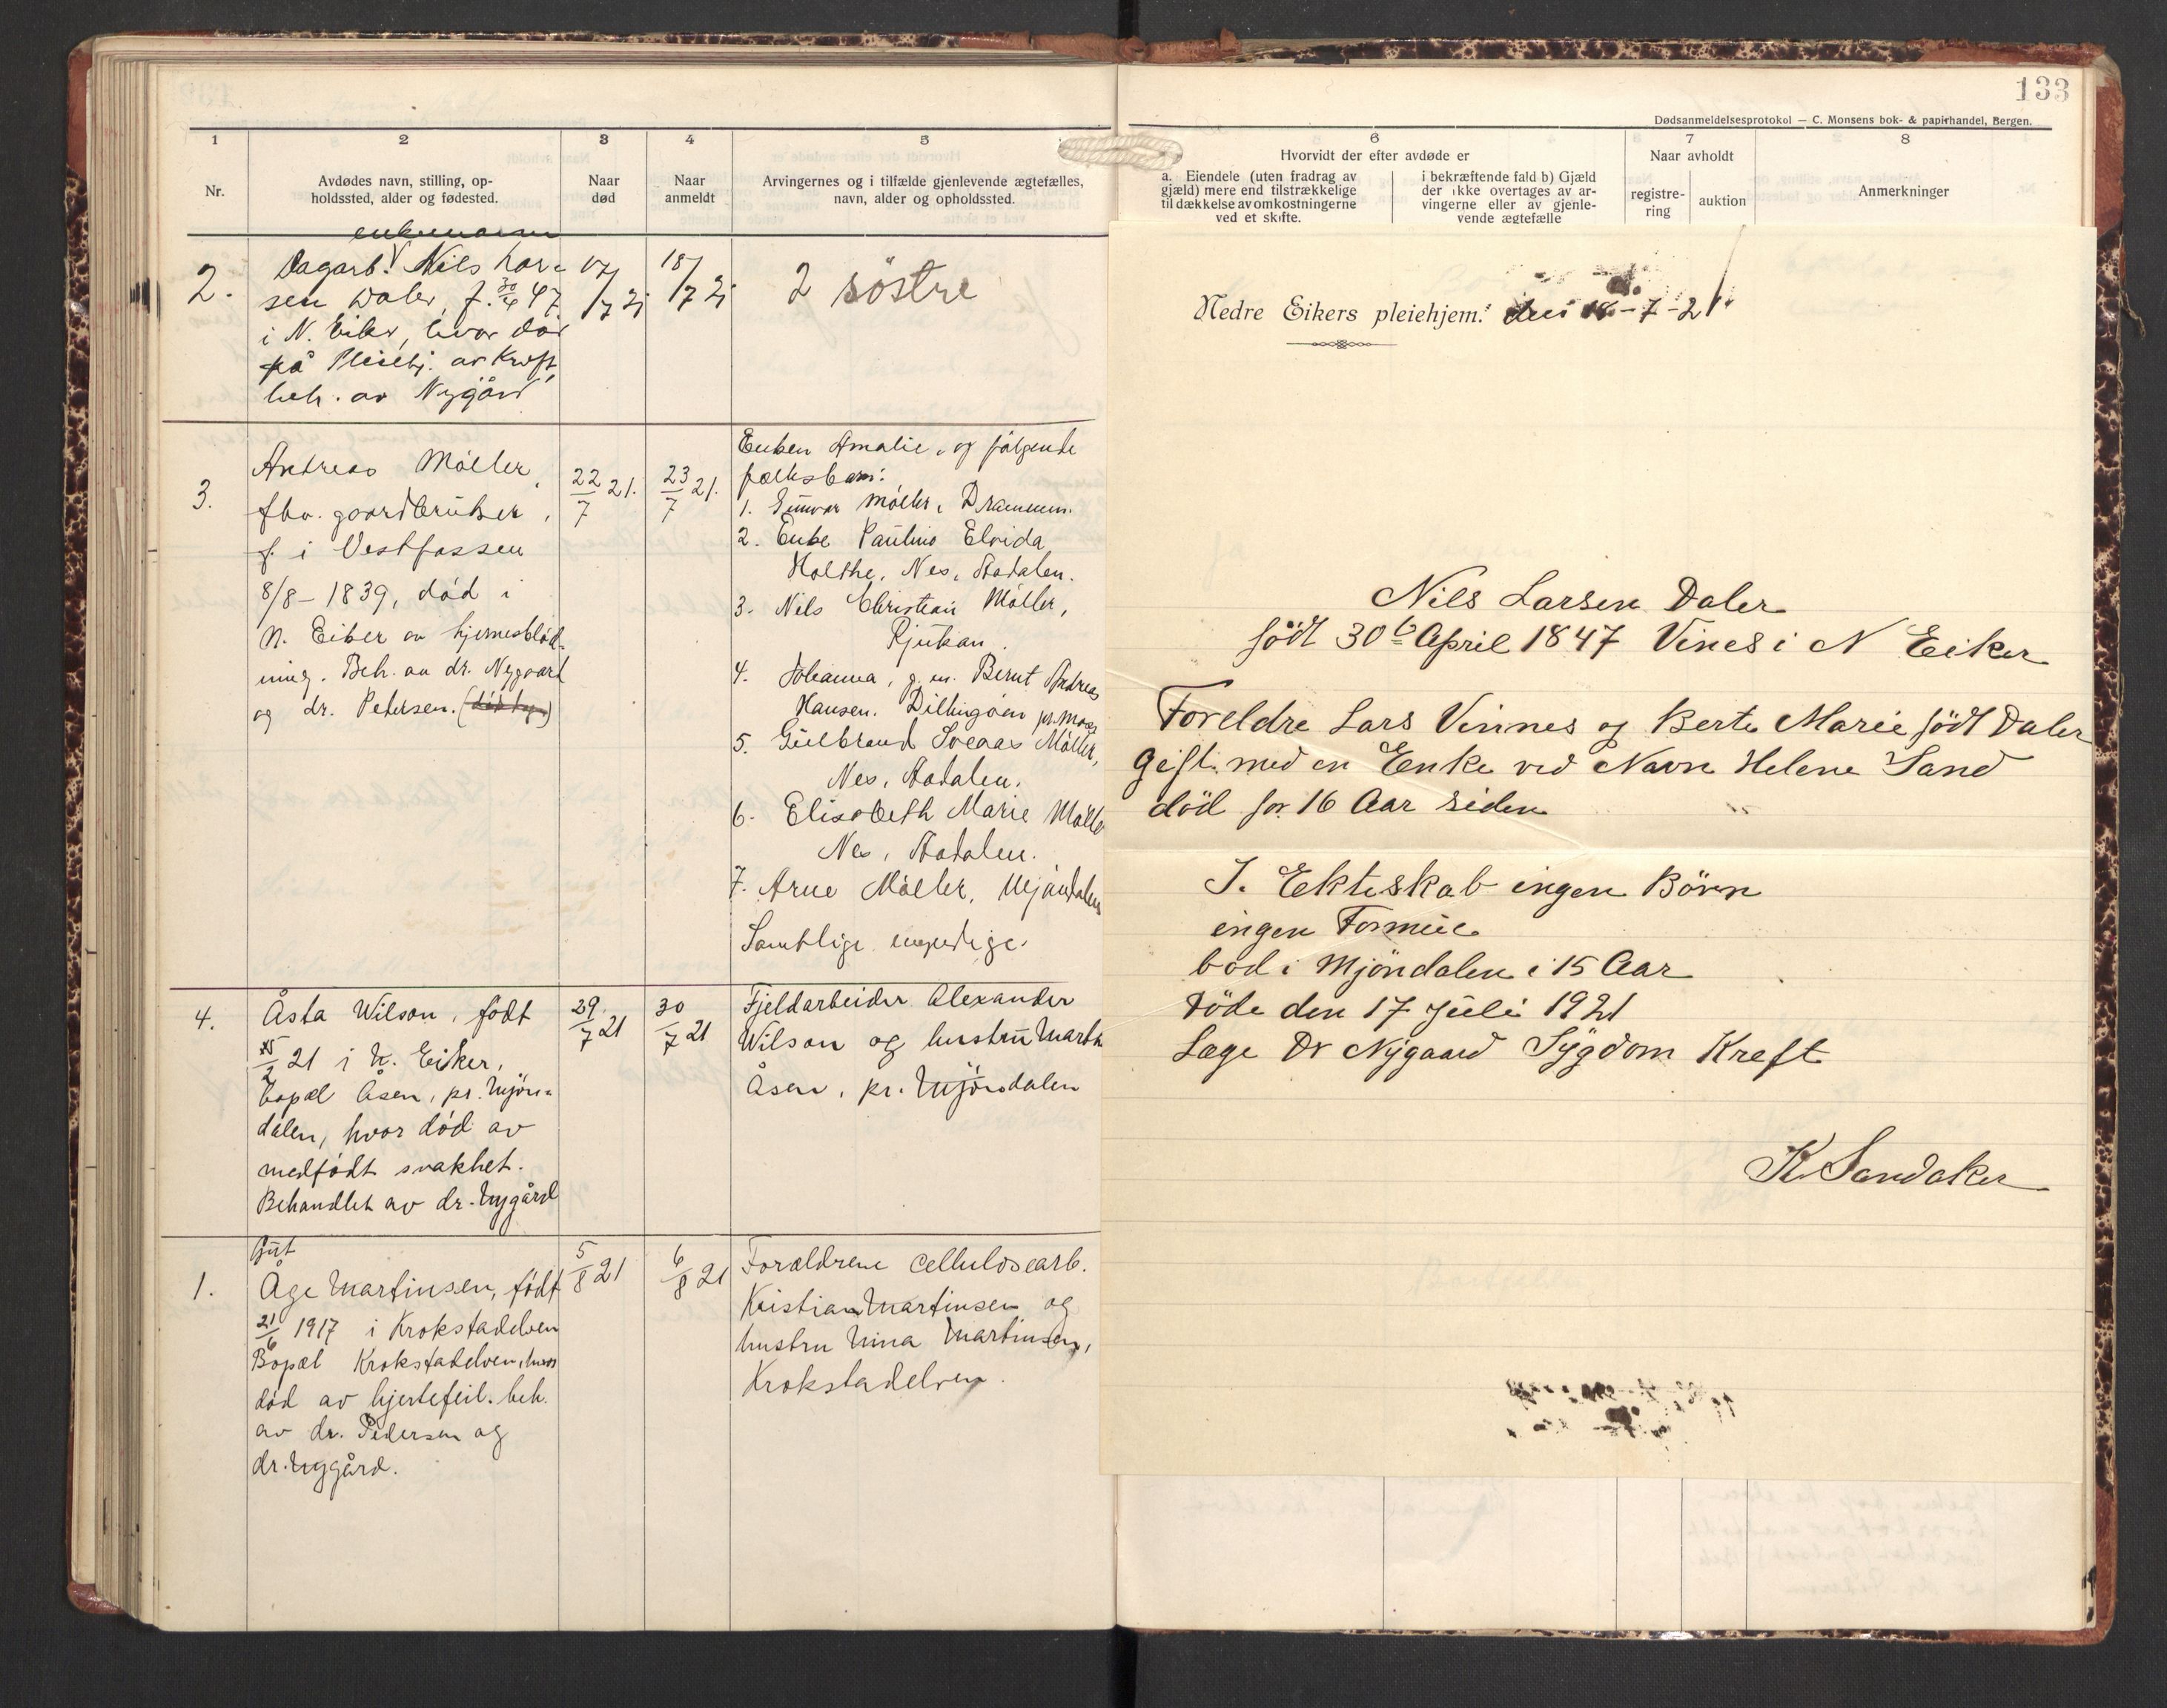 1
2
3
4
5
Nr.
Avdødes navn, stilling, op-
holdssted, alder og fødested.
Naar
død
Naar
anmeldt
Arvingernes og i tilfælde gjenlevende ægtefælles,
navn, alder og opholdssted.
enkemann
2.
Dagarb. Nils Lar-
sen Daler, f. 30/4 47
i N. Eiker, hvor død
på Pleiehj. av Kreft,
beh. av Nygård
17/7 21
18/7 21
2 søstre
3.
Andreas Möller,
fhv. gaardbruker,
f. i Vestfossen
8/8 - 1839, död i
N. Eiker av hjerneblöd-
ning. Beh. av dr. Nygaard
og dr. Petersen.
22/7 21.
23/7 21.
Enken Amalie, og følgende
fællesbarn:
1. Gunvor Möller, Drammen.
2. Enke Pauline Elvida
Holthe, Nes, Aadalen.
3. Nils Christian Möller,
Rjukan.
4. Johanna, g. m. Bernt Andreas
Hansen. Dillingöen pr. Moss
5. Gulbrand Sveaas Möller,
Nes, Aadalen.
6. Elisabeth Marie Möller
Nes, Aadalen.
7. Arne Möller, Mjöndalen
Samtlige myndige.
4.
Åsta Wilson, født
21 i N. Eiker,
bopæl Åsen, pr. Mjön-
dalen, hvor død av
medfødt svakhet.
Behandlet av dr. Nygård
29/7 21
30/7 21
Fjeldarbeider Alexander
Wilson og hustru Martha
Åsen, pr. Mjöndalen
1.
Gut
Åge Martinsen, født
21/6 1917 i Krokstadelven
Bopæl Krokstadelven, hvor
død av hjertefeil. beh.
av dr. Pedersen og
dr. Nygård.
5/8 21
6/8 21
Forældrene cellulosearb.
Kristian Martinsen og
hustru Nina Martinsen,
Krokstadelven.
133
Dødsanmeldelsesprotokol — C. Monsens bok- & papirhandel, Bergen.
6
7
8
Hvorvidt der efter avdøde er
a. Eiendele (uten fradrag av
gjæld) mere end tilstrækkelige
til dækkelse av omkostningerne
ved et skifte.
i bekræftende fald b) Gjæld
der ikke overtages av ar-
vingerne eller av gjenle-
vende ægtefælle
Naar avholdt
registre-
ring
auktion
Anmerkninger
Nedre Eikers pleiehjem. den 18-7-21.
Nils Larsen Daler
född 30te April 1847 Vines i N Eiker
Foreldre Lars Vinnes og Berte Marie född Daler
Gift med en Enke ved Navn Helene Sand
död for 16 Aar siden
I. Ekteskab ingen Börn
ingen Formue
bod i Mjöndalen i 15 Aar
Döde den 17 Juli 1921
Læge Dr Nygaard Sygdom Kreft
K. Sandaker